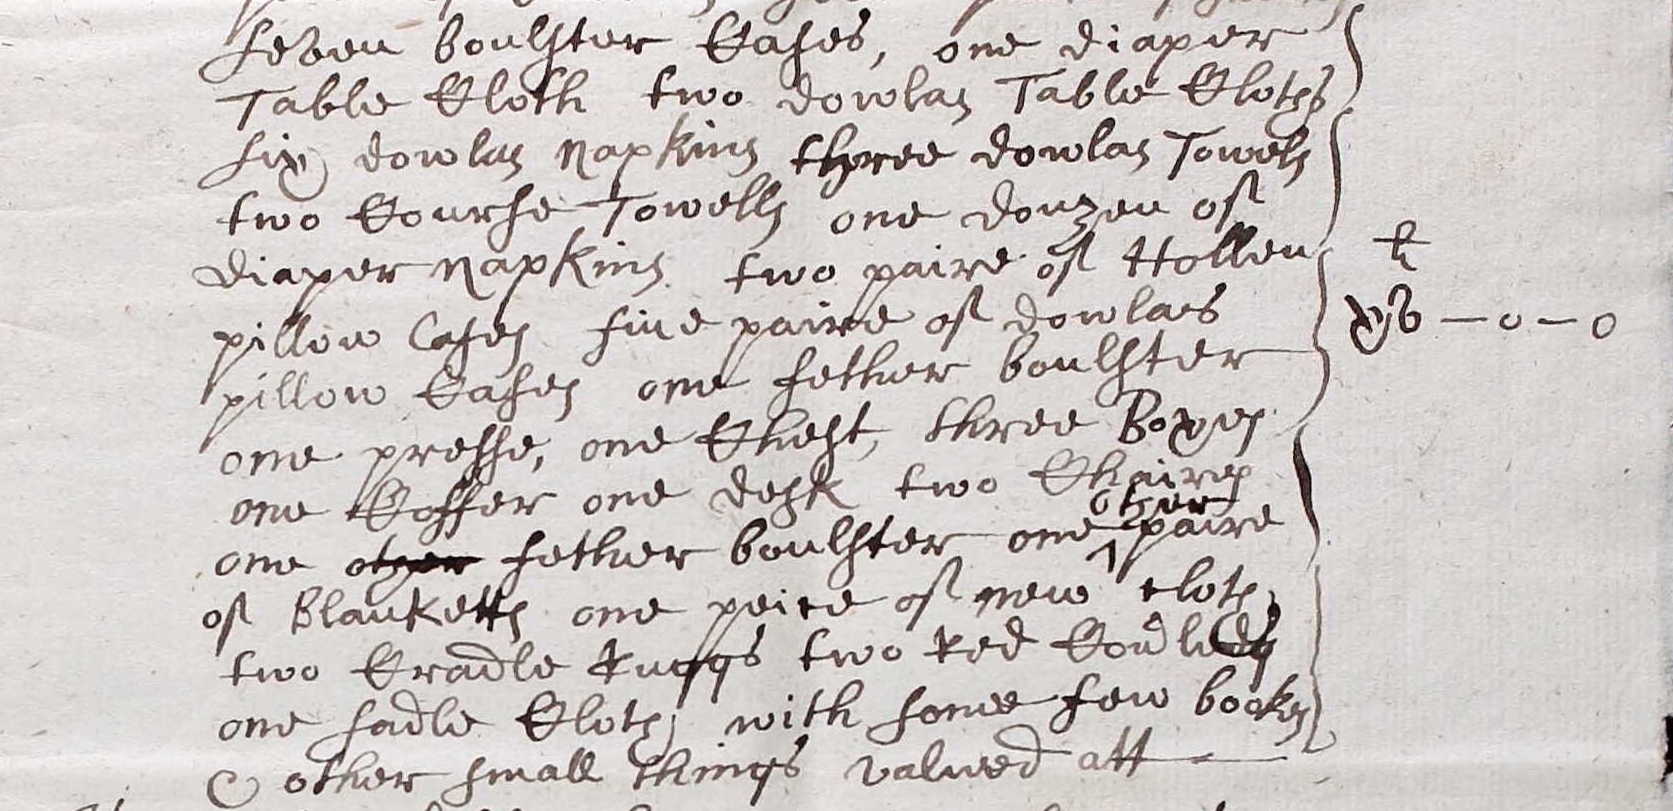 seven boulster Cases, one diaper
Table Cloth two dowlas Table Cloths
six dowlas Napkins three dowlas Towels
two Courhse Towells one douzen of
diaper Napkins two paire of Hollen
pillow Cases five paire of dowlaes
pillow Cases one fether boulster
one presse, one Chest, three Boxes
one Coffer one desk two Chaires
one other fether boulster one other paire
of Blanketts one peice of new cloth
two Cradle Ruggs two Red
one sadle Cloth with some few bookes
& other small things valued att
li
xv — o — o